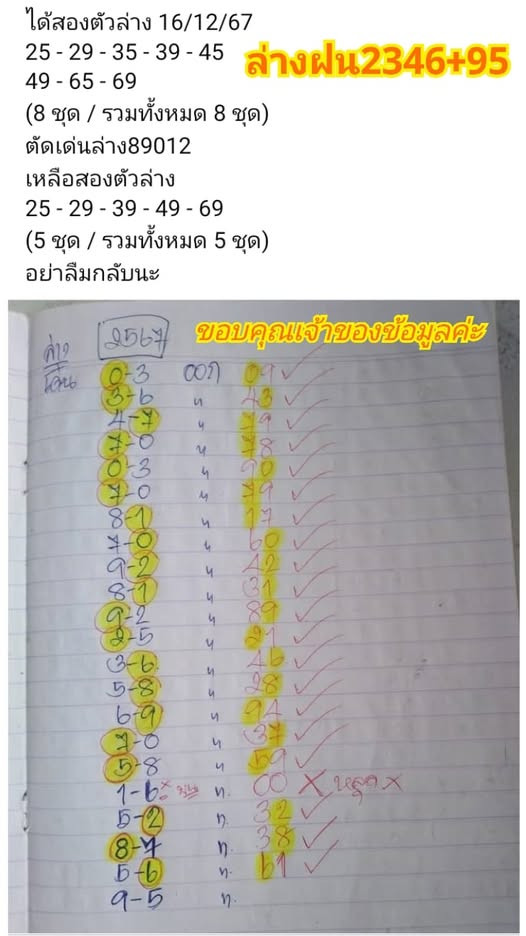 ได้สองตัวล่าง 16/12/67
25 - 29 - 35 - 39 - 45
49 - 65 - 69
ล่างฝน2346+95
(8 ชุด / รวมทั้งหมด 8 ชุด)
ตัดเด่นล่าง89012
เหลือสองตัวล่าง
25 - 29 - 39 - 49 - 69
(5 ชุด / รวมทั้งหมด 5 ชุด)
อย่าลืมกลับนะ
ล่าง 2567 ขอบคุณเจ้าของข้อมูลค่ะ
0-3 ออก 09 ✓
3-6 " 43 ✓
4-7 " 79 ✓
7-0 " 78 ✓
0-3 " 90 ✓
7-0 " 79 ✓
8-1 " 17 ✓
7-0 " 60 ✓
9-2 " 42 ✓
8-1 " 31 ✓
9-2 " 89 ✓
2-5 " 21 ✓
3-6 " 46 ✓
5-8 " 28 ✓
6-9 " 94 ✓
7-0 " 37 ✓
5-8 " 59 ✓
1-6 × " 00 × หลุด ×
5-2 " 32 ✓
8-7 " 38 ✓
5-6 " 61 ✓
9-5 "